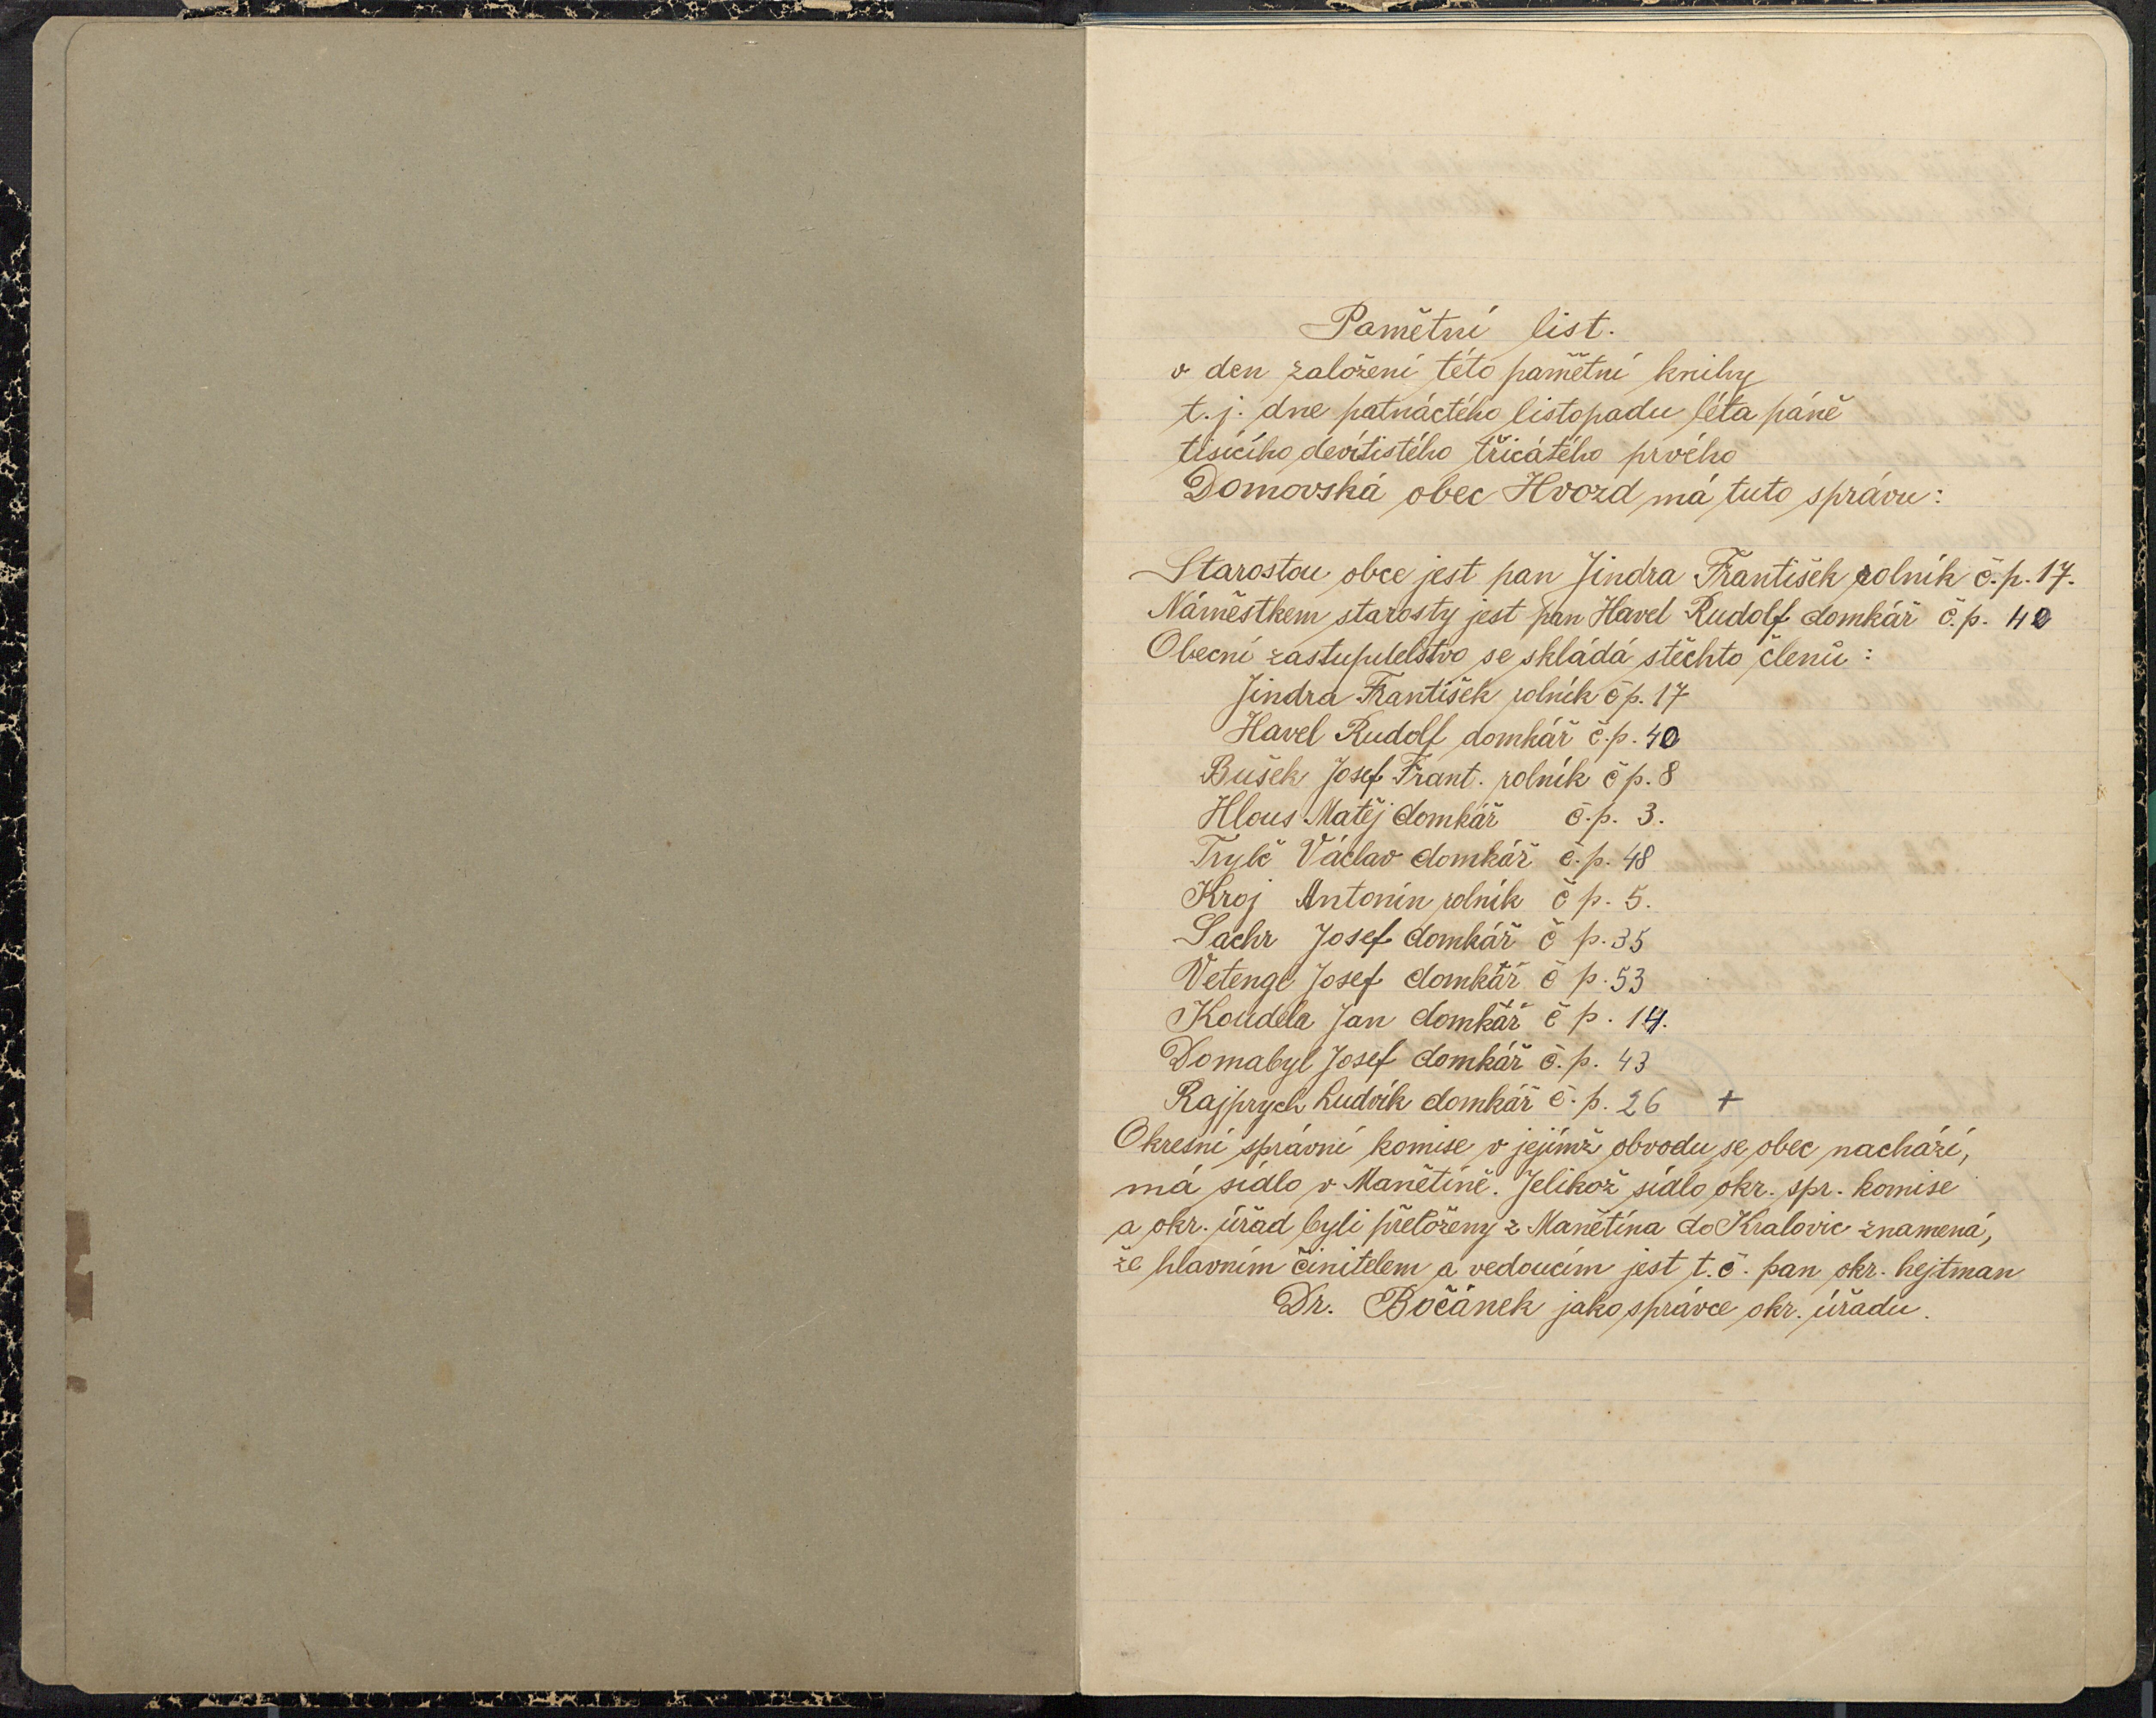 Pamětní list.
v den založení této pamětní knihy
t.j. dne patnáctého listopadu léta páně
tisícího devítistého třicátého prvého
Domovská obec Hvozd má tuto správu:
Starostou obce jest pan Jindra František rolník č.p. 17.
Náměstkem starosty jest pan Havel Rudolf domkář č.p. 40
Obecní zastupitelstvo se skládá stěchto členů:
Jindra František rolník č p. 17
Havel Rudolf domkář č.p. 40
Bušek Josef Frant. rolník č p. 8
Hlous Matěj domkář č.p. 3.
Trylč Václav domkář č.p. 48
Kroj Antonín rolník č p. 5.
Sachr Josef domkář č p. 35
Vetengl Josef domkář č p. 53
Koudela Jan domkář č p. 14.
Domabyl Josef domkář č.p. 43
Rajprych Ludvík domkář č.p. 26 +
Okresní správní komise v jejímž obvodu se obec nachází,
má sídlo v Manětíně. Jelikož sídlo okr. spr. komise
a okr. úřad byli přeloženy z Manětína do Kralovic znamená,
že hlavním činitelem a vedoucím jest t.č. pan okr. hejtman
Dr. Bočánek jako správce okr. úřadu.